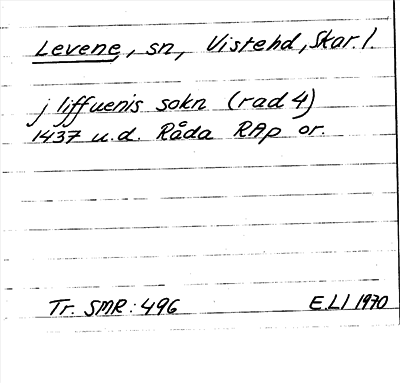 Levene, sn, Vistehd, Skar. l.
j liffuenis sokn (rad 4)
1437 u.d. Råda RAp or.
Tr. SMR: 496 E.LI 1970